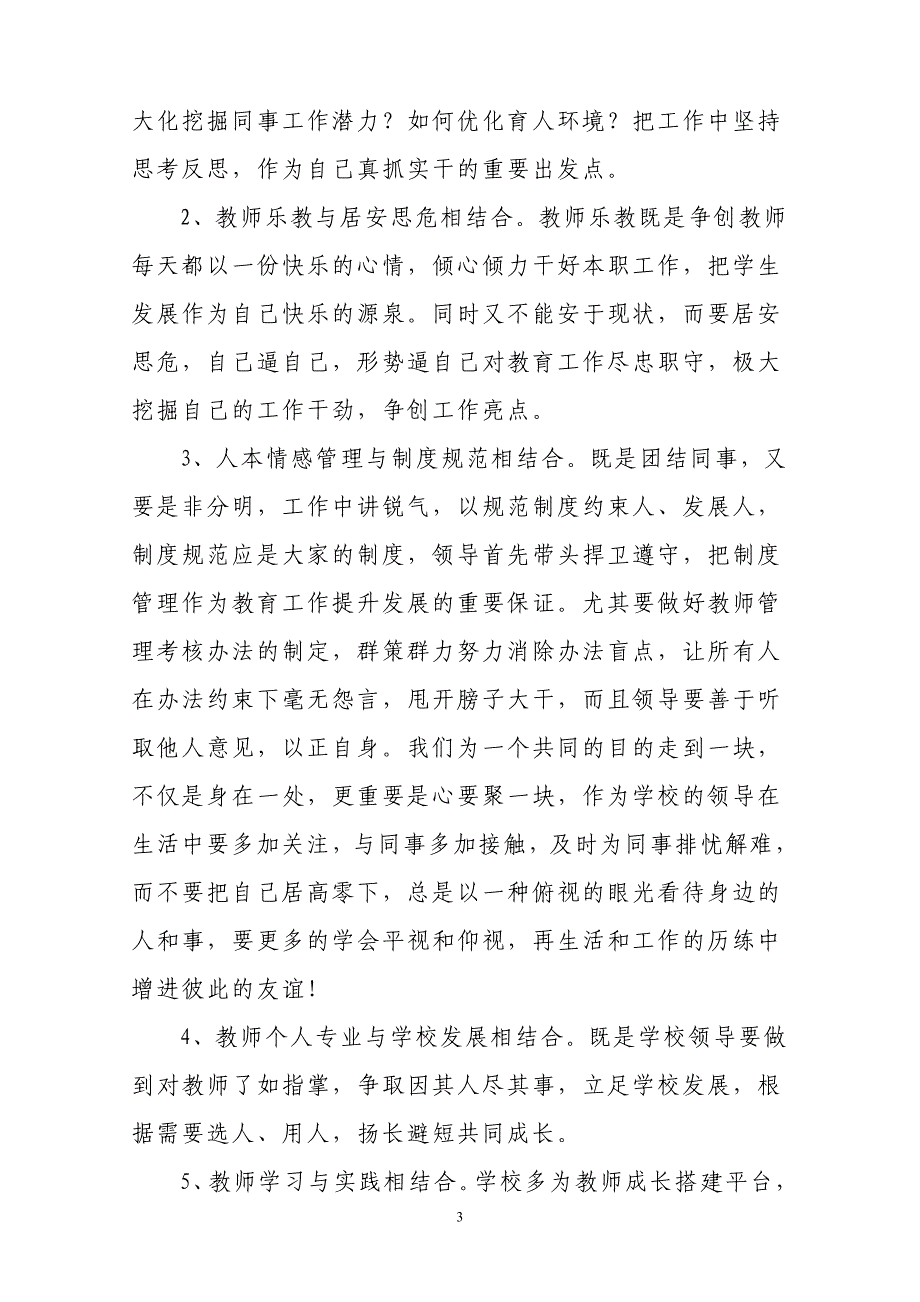 大化挖掘同事工作潜力？如何优化育人环境？把工作中坚持
思考反思，作为自己真抓实干的重要出发点。
2、教师乐教与居安思危相结合。教师乐教既是争创教师
每天都以一份快乐的心情，倾心倾力干好本职工作，把学生
发展作为自己快乐的源泉。同时又不能安于现状，而要居安
思危，自己逼自己，形势逼自己对教育工作尽忠职守，极大
挖掘自己的工作干劲，争创工作亮点。
3、人本情感管理与制度规范相结合。既是团结同事，又
要是非分明，工作中讲锐气，以规范制度约束人、发展人，
制度规范应是大家的制度，领导首先带头捍卫遵守，把制度
管理作为教育工作提升发展的重要保证。尤其要做好教师管
理考核办法的制定，群策群力努力消除办法盲点，让所有人
在办法约束下毫无怨言，甩开膀子大干，而且领导要善于听
取他人意见，以正自身。我们为一个共同的目的走到一块，
不仅是身在一处，更重要是心要聚一块，作为学校的领导在
生活中要多加关注，与同事多加接触，及时为同事排忧解难，
而不要把自己居高零下，总是以一种俯视的眼光看待身边的
人和事，要更多的学会平视和仰视，再生活和工作的历练中
增进彼此的友谊！
4、教师个人专业与学校发展相结合。既是学校领导要做
到对教师了如指掌，争取因其人尽其事，立足学校发展，根
据需要选人、用人，扬长避短共同成长。
5、教师学习与实践相结合。学校多为教师成长搭建平台，
3